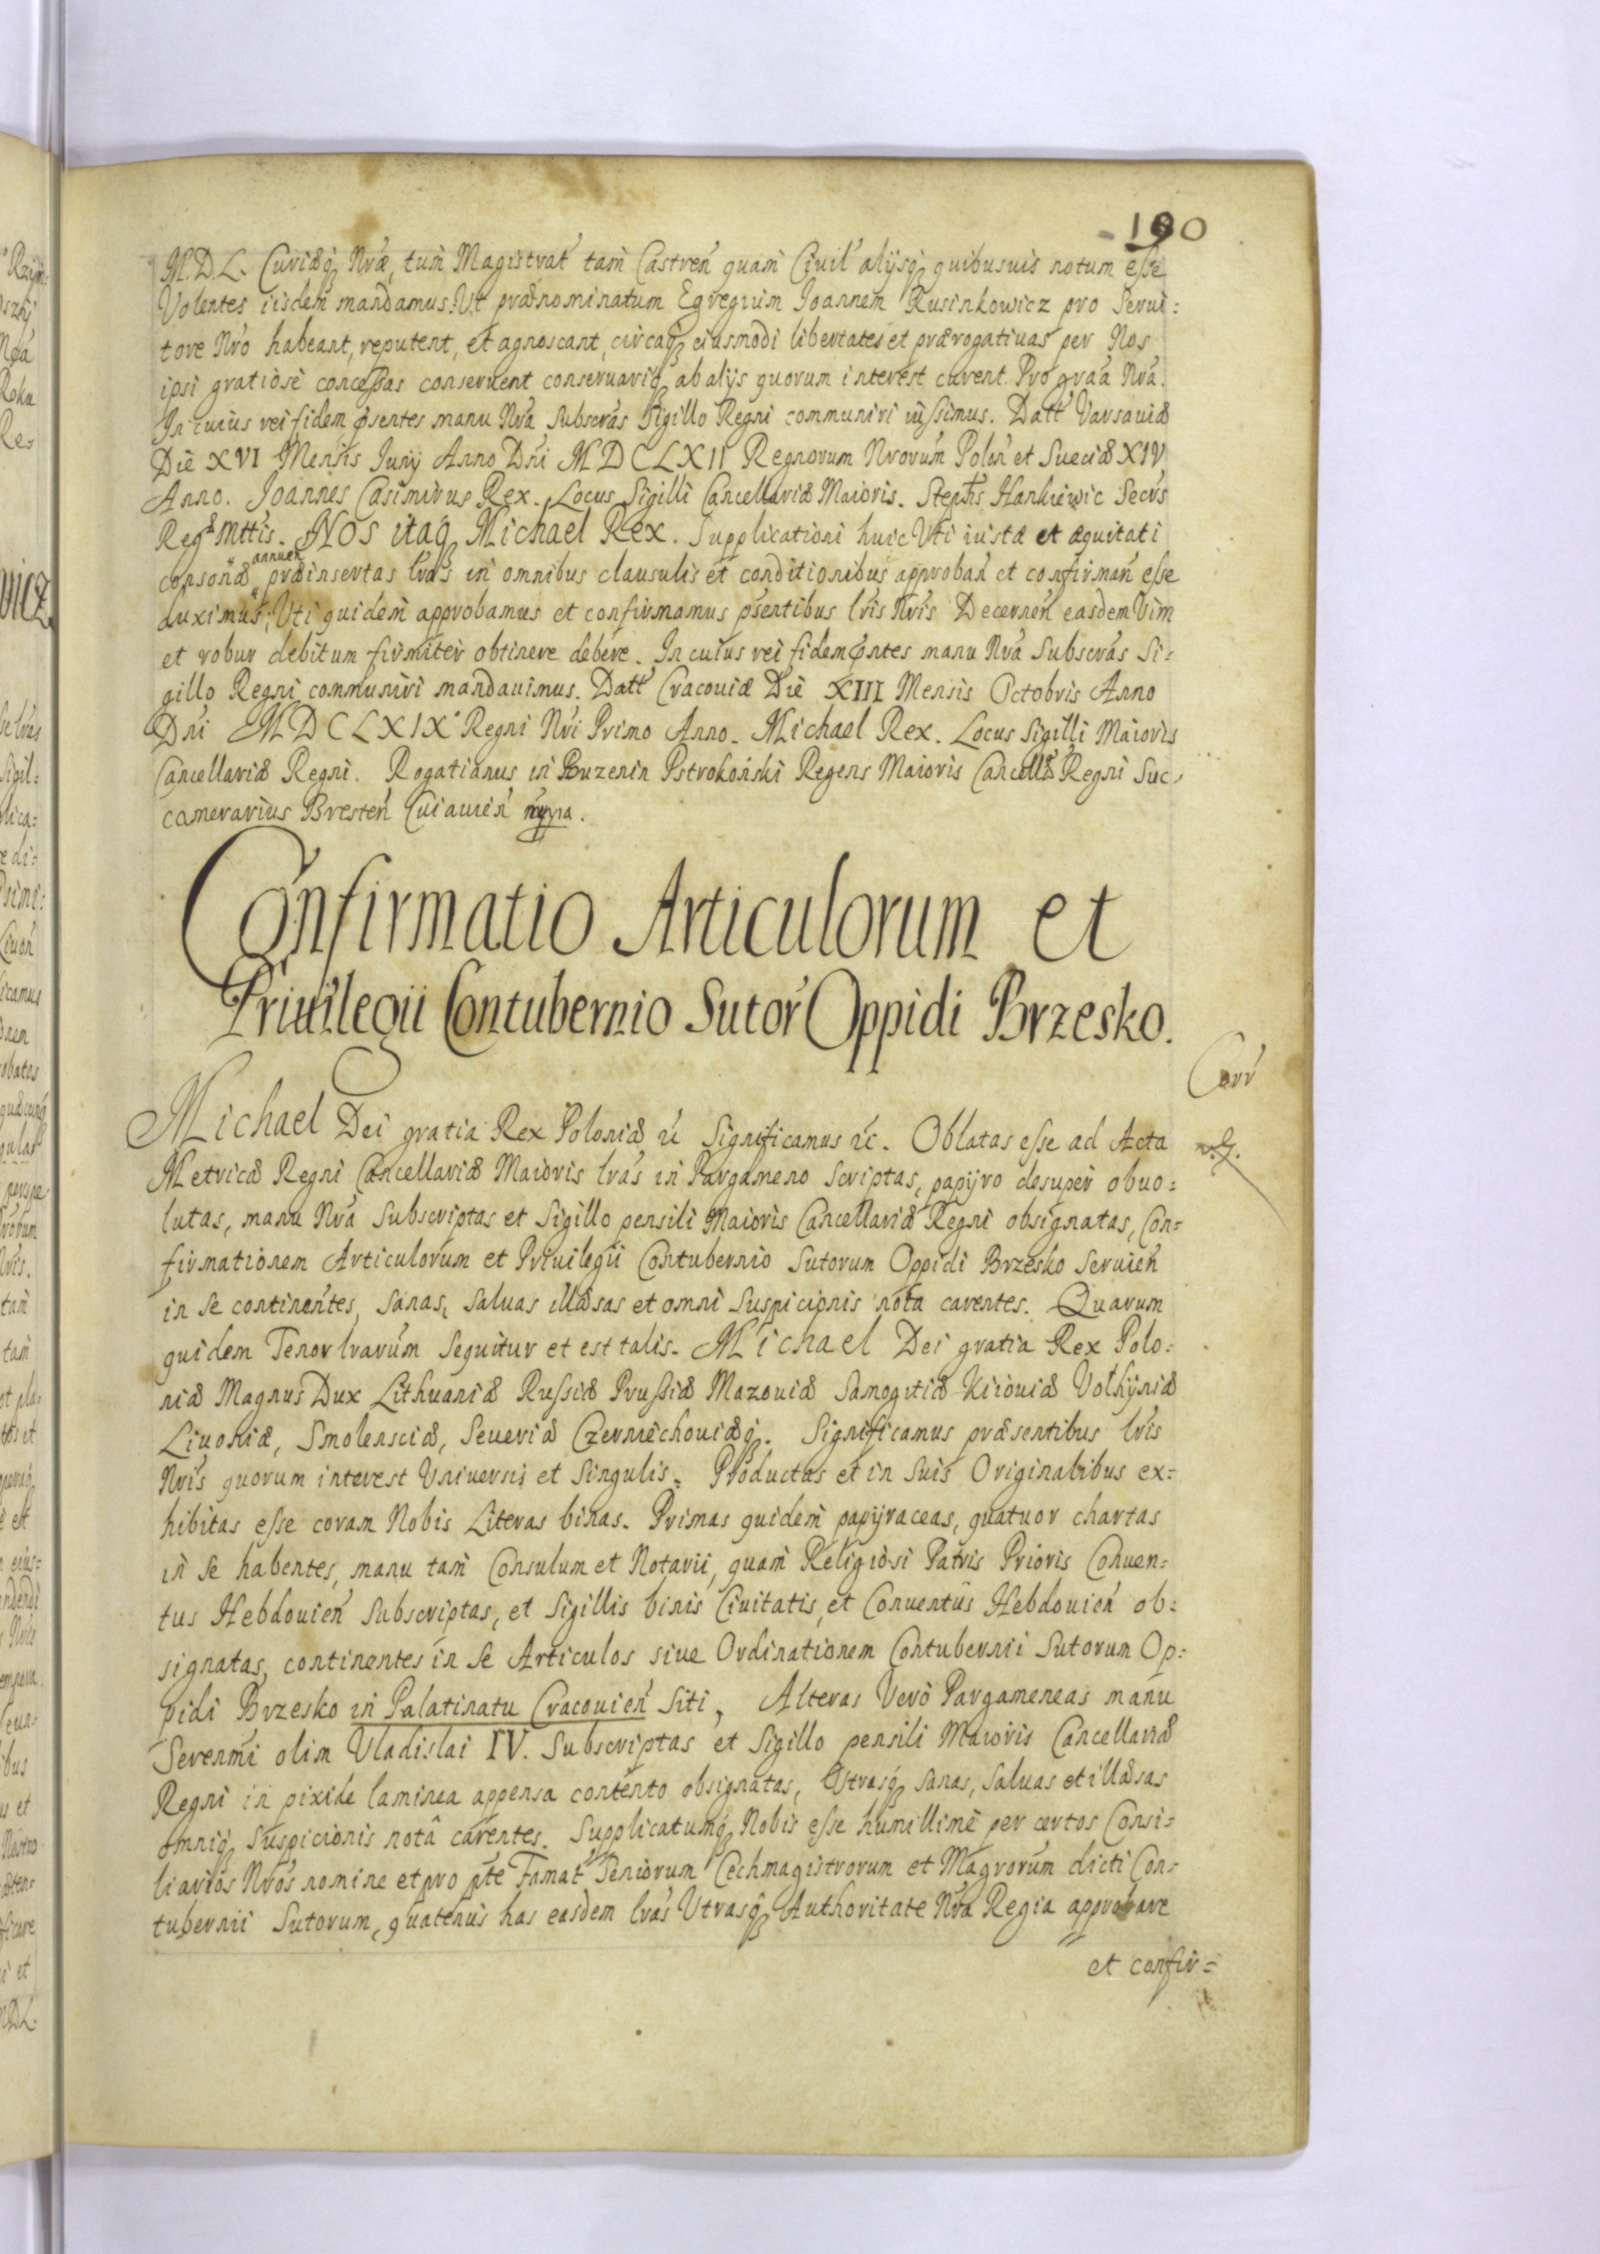 190
M.D.L. Curiæq₃ Nræ, tum̀ Magistrat̃ tam̀ Castreñ quam̀ Ciuil̃ alijsq₃ quibusuis notum esse
Volentes iisdem mandamus. Ut prænominatum Egregium Joannem Rusinkowicz pro Serui=
tore Nr̃o habeant, reputent, et agnoscant, circaq₃ eiusmodi libertates et prærogatiuas per Nos
ipsi gratiosè concessas conseruent conseruariq₃ ab alijs quorum interest curent. Pro gr̃aa Nr̃a.
In cuius rei fidem p̃sentes manu Nr̃a subscr̃as Sigillo Regni communiri iussimus. Datt̃ Varsauiæ
Die XVI Mensis Junij Anno Dñi MDCLXII Regnorum Nrorum̃ Polon̄ et Sueciæ XIV
Anno. Joannes Casimirus Rex. Locus Sigilli Cancellariæ Maioris. Stephs̃ Hankiewic Secr̃s
Regæ Mttis. Nos itaq₃ Michael Rex. Supplicationi huic Uti iustæ et æquitati
consonæ annueñ præinsertas lr̃as in omnibus clausulis et conditionibus approbañ et confirmañ esse
duximus, Uti quidem̀ approbamus et confirmamus p̃sentibus lr̃is Nr̃is Decerneñ easdem Vim
et robur debitum firmiter obtinere debere. In cuius rei fidem p̃ntes manu Nr̃a Subscr̃as Si=
gillo Regni communiri mandauimus. Datt̃ Cracouiæ Die XIII Mensis Octobris Anno
Dñi MDCLXIX° Regni Nr̃i Primo Anno. Michael Rex. Locus Sigilli Maioris
Cancellariæ Regni. Rogatianus in Buzenin Pstrokoński Regens Maioris Cancellæ Regni Suc=
camerarius Bresteñ Cuiauieñ mppa.
Confirmatio Articulorum et
Priuilegii Contubernio Sutor̃ Oppidi Brzesko.
Corr̃
Michael Dei gratia Rex Poloniæ &̃ Significamus &̃c. Oblatas esse ad Acta
Metricæ Regni Cancellariæ Maioris lr̃as in Pargameno Scriptas, papyro desuper obuo=
lutas, manu Nr̃a Subscriptas et Sigillo pensili Maioris Cancellariæ Regni obsignatas, Con=
firmationem Articulorum et Priuilegii Contubernio Sutorum Oppidi Brzesko Seruieñ
in se continentes, sanas, saluas illæsas et omni suspicionis nota carentes. Quarum
quidem Tenor lr̃arum̃ sequitur et est talis. Michael Dei gratia Rex Polo=
niæ Magnus Dux Lithuaniæ Russiæ Prussiæ Mazouiæ Samogitiæ Kiiouiæ Volhyniæ
Liuoniæ, Smolensciæ, Seueriæ Czerniechouiæq₃. Significamus præsentibus lr̃is
Nr̃is quorum interest Uniuersis et Singulis. Productas et in suis Originalibus ex=
hibitas esse coram Nobis Literas binas. Primas quidem̀ papyraceas, quatuor chartas
in se habentes, manu tam̀ Consulum et Notarii, quam̀ Religiosi Patris Prioris Conuen=
tus Hebdouieñ Subscriptas, et Sigillis binis Ciuitatis, et Conuentûs Hebdouieñ ob=
signatas, continentes in se Articulos siue Ordinationem Contubernii Sutorum Op=
pidi Brzesko in Palatinatu Cracouieñ Siti, Alteras Verò Pargameneas manu
Seren̄mi olim Vladislai IV. Subscriptas et Sigillo pensili Maioris Cancellariæ
Regni in pixide laminea appensa contento obsignatas, Utrasq₃ sanas, saluas et illæsas
omniq₃ suspicionis notâ carentes. Supplicatumq₃ Nobis esse humillimè per certos Consi=
liarios Nr̃os nomine et pro pte Famat̃ Seniorum Cechmagistrorum et Magr̃orum̃ dicti Con=
tubernii Sutorum, quatenus has easdem lr̃as Utrasq₃ Authoritate Nr̃a Regia approbare
et confir=